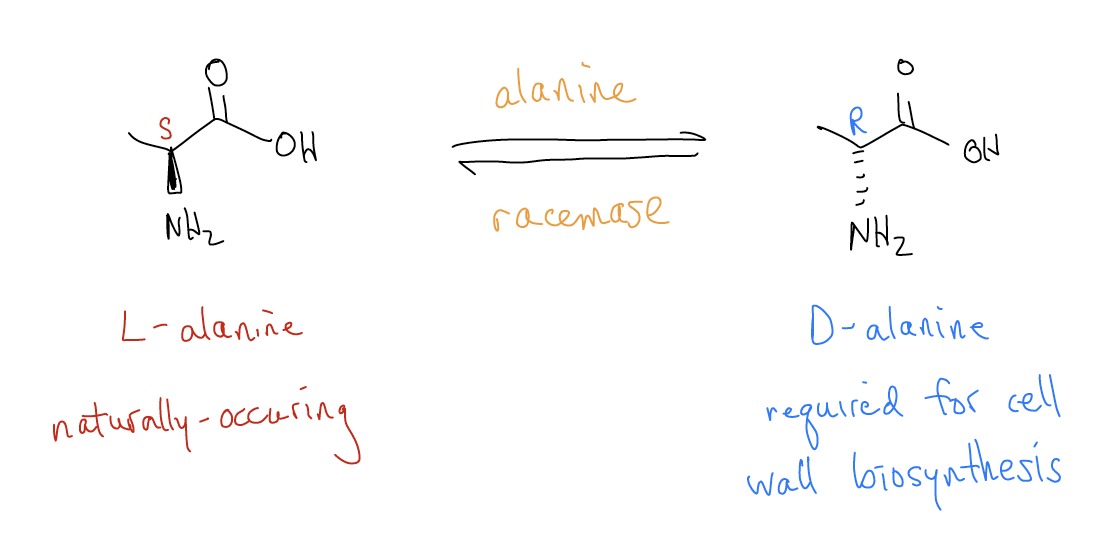 O
S
OH
NH2
alanine
racemase
O
R
OH
NH2
L-alanine
naturally-occuring
D-alanine
required for cell
wall biosynthesis